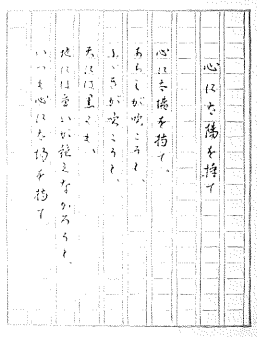 心に太陽を持て
心に太陽を持て。
あらしが吹こうと、
ふぶきが吹こうと、
天には黒くも、
地には争いが絶えなかろうと、
いつも心に太陽を持て